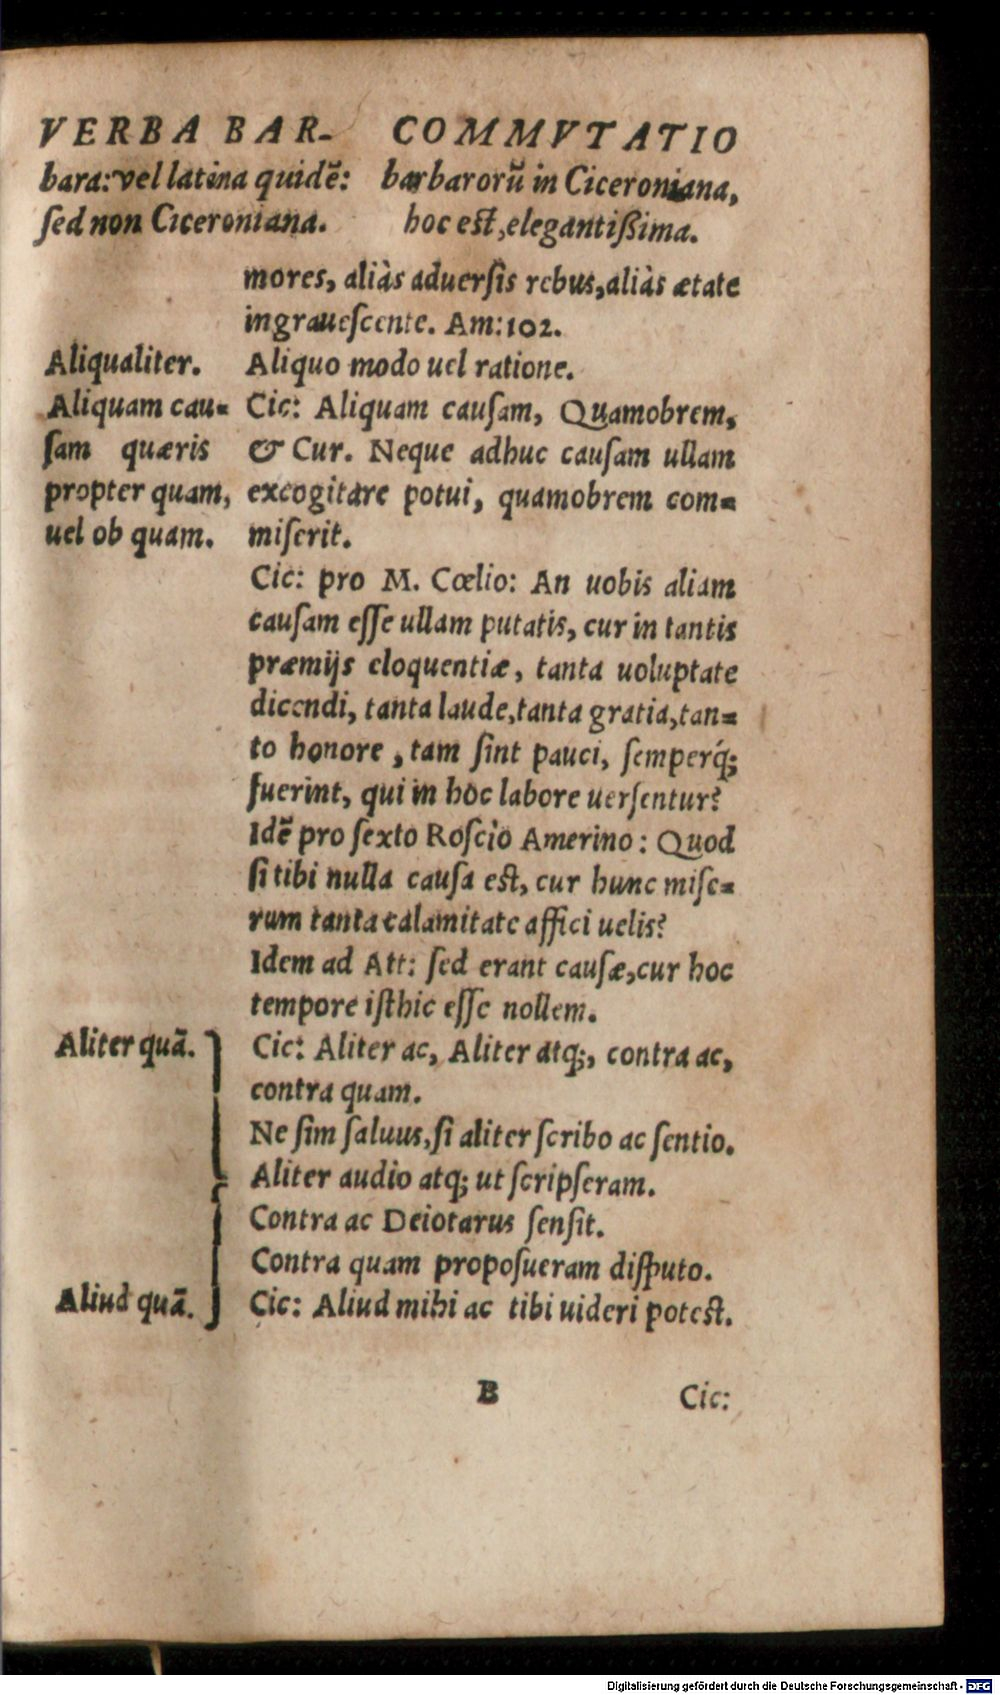 VERBA BAR-
bara: vel latina quidẽ:
sed non Ciceroniana.
COMMVTATIO
barbarorũ in Ciceroniana,
hoc est, elegantißima.
mores, aliàs aduersis rebus, aliàs ætate
ingrauescente. Am: 102.
Aliqualiter.
Aliquo modo uel ratione.
Aliquam cau=
sam quæris
propter quam,
uel ob quam.
Cic: Aliquam causam, Quamobrem,
& Cur. Neque adhuc causam ullam
excogitare potui, quamobrem com=
miserit.
Cic: pro M. Cœlio: An uobis aliam
causam esse ullam putatis, cur in tantis
præmijs eloquentiæ, tanta uoluptate
dicendi, tanta laude, tanta gratia, tan=
to honore, tam sint pauci, semperq́;
fuerint, qui in hoc labore uersentur?
Idẽ pro sexto Roscio Amerino: Quod
si tibi nulla causa est, cur hunc mise=
rum tanta calamitate affici uelis?
Idem ad Att: sed erant causæ, cur hoc
tempore isthic esse nollem.
Aliter quã.
Cic: Aliter ac, Aliter atq;, contra ac,
contra quam.
Ne sim saluus, si aliter scribo ac sentio.
Aliter audio atq; ut scripseram.
Contra ac Deiotarus sensit.
Contra quam proposueram disputo.
Aliud quã.
Cic: Aliud mihi ac tibi uideri potest.
B
Cic:
Digitalisierung gefördert durch die Deutsche Forschungsgemeinschaft - DFG